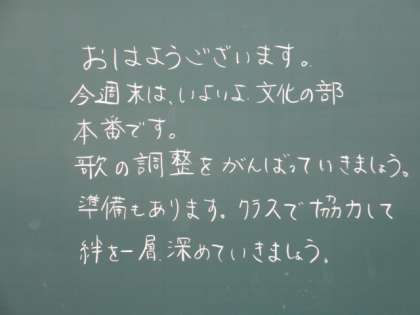 おはようございます。
今週末は、いよいよ文化の部
本番です。
歌の調整をがんばっていきましょう。
準備もあります。クラスで協力して
絆を一層深めていきましょう。